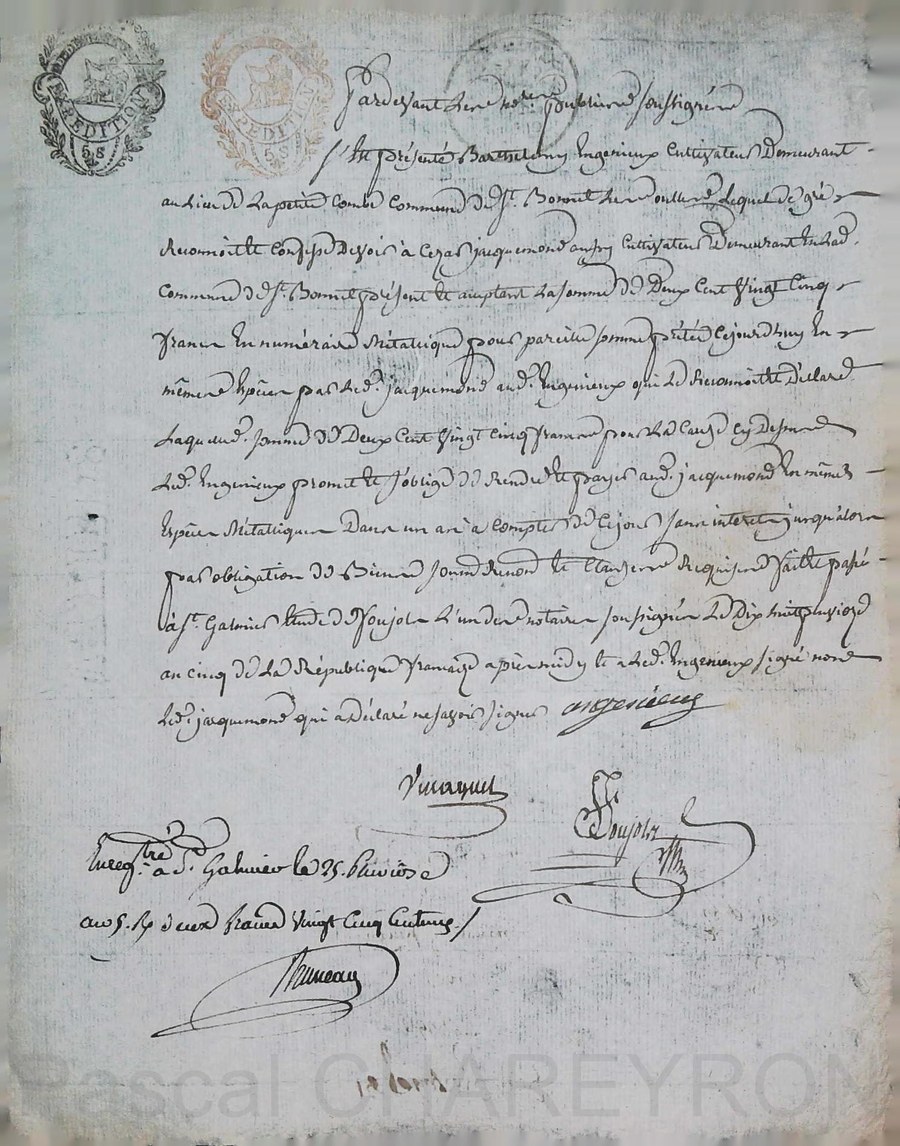 EXPEDITION
EXPEDITION
Pardevant Les notres publics soussignés
S'est présenté Barthelemy Ingenieux Cultivateur Demeurant
au Lieu de La petite Combe Commune de St. Bonnet Les oulles Lequel de gré
Reconnoit et Confesse Devoir à Cezar jacquemond aussy Cultivateur Demeurant en Lad.
Commune de St. Bonnet présent et acceptant La somme de Deux Cent Vingt Cinq
francs En numéraire Métallique pour pareille somme prêtée Cejourdhuy En
mêmes Espèces par Led. jacquemond aud. Ingenieux qui Le Reconnoit et Déclare
Laquelle somme de Deux Cent Vingt Cinq francs pour La Cauze cy Dessus
Led. Ingenieux promet et s'oblige de Rendre et payer aud. jacquemond En mêmes
Espèces Métalliques Dans un an à Compter de Cejour sans interets jusqu'alors
par obligation de Biens soum Renon et Clauzes Requises fait et passé
à St. Galmier Etude de Poujols L'un des notaires soussignés Le Dix huit pluviose
an cinq de La République française après midy et a Led. Ingenieux signé non
Led. jacquemond qui a Déclaré ne savoir signer
angenieux
Poujols
Enregtré à St. Galmier le 25. Pluviôse
an 5. R deux francs Vingt Cinq Centimes /
Bruneau
Pascal CHAREYRON